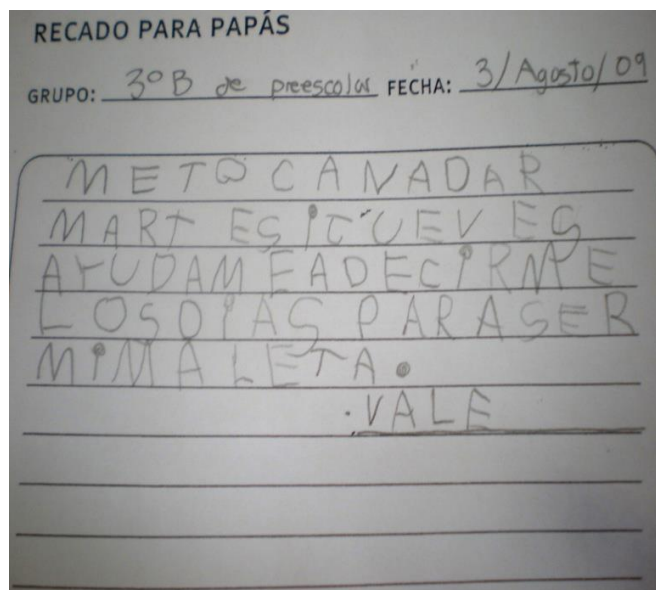 RECADO PARA PAPÁS
GRUPO: 3º B de preescolar FECHA: 3/Agosto/09
METOCANADAR
MART ESICUEVES
AYUDAMEADECIRME
LOSDIAS PARASER
MIMALETA.
.VALE